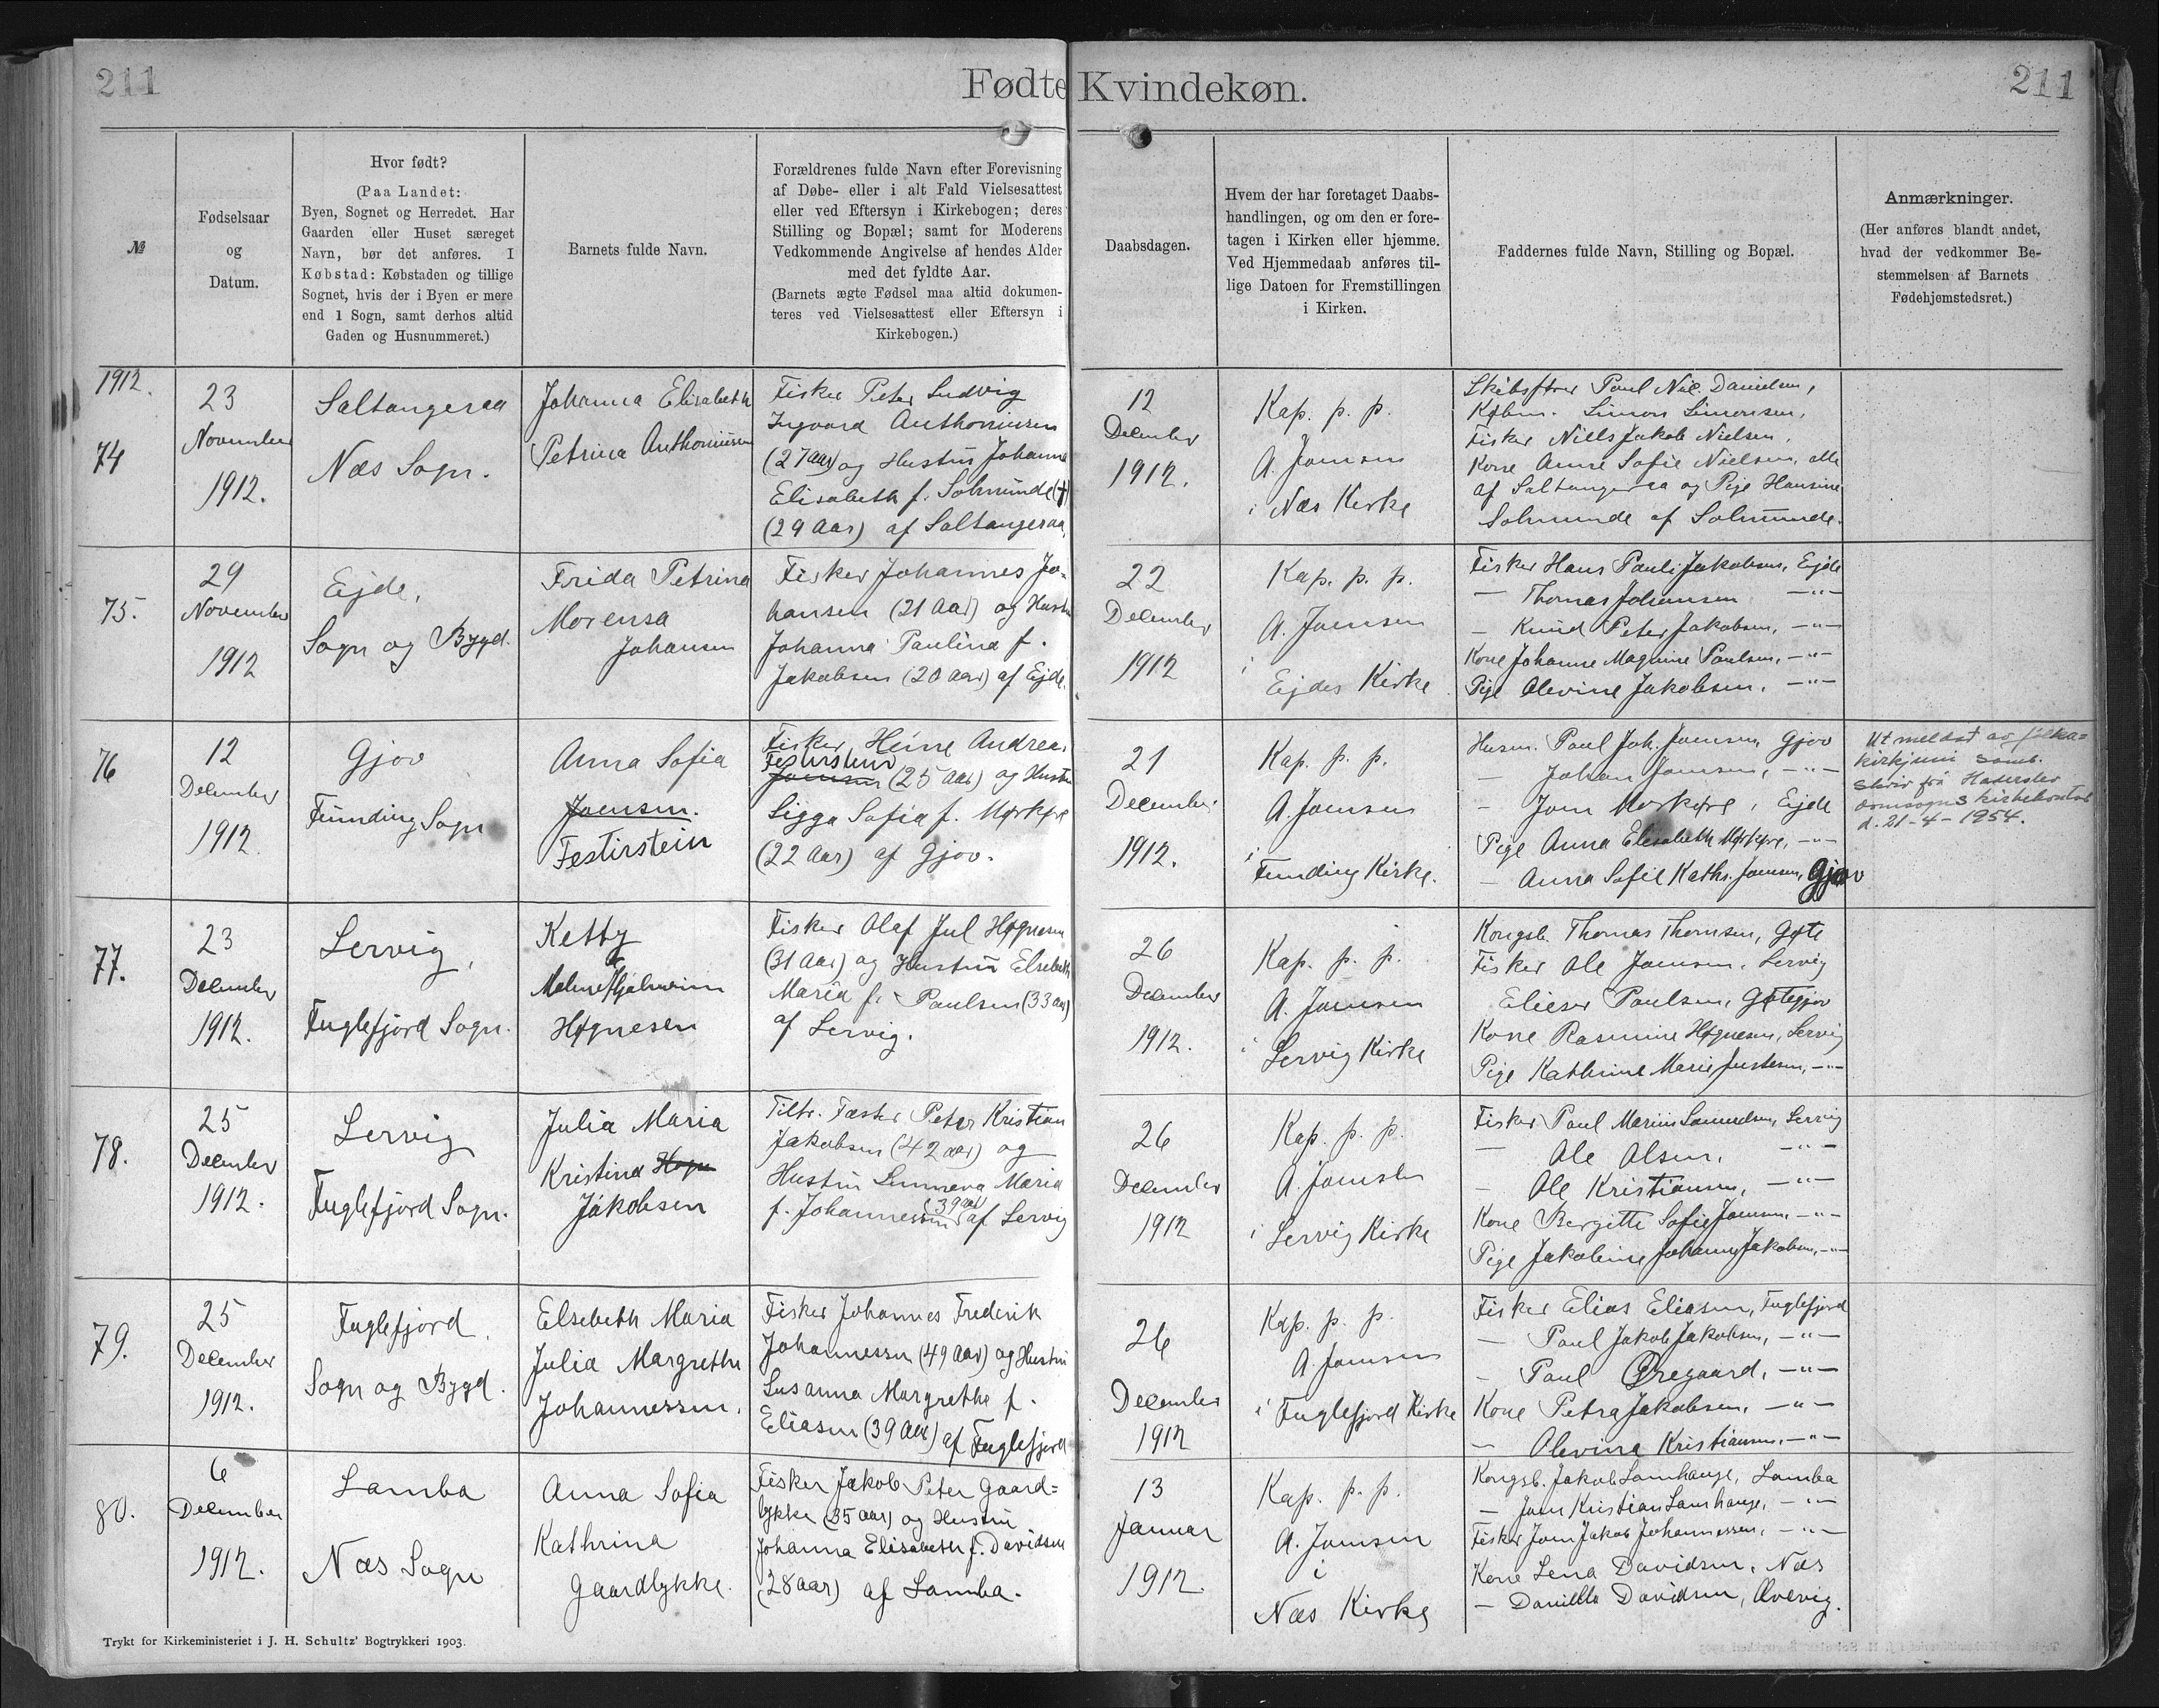 211
Fødte Kvindekøn.
211
№
Fødselsaar
og
Datum.
Hvor født?
(Paa Landet:
Byen, Sognet og Herredet. Har
Gaarden eller Huset særeget
Navn, bør det anføres. I
Købstad: Købstaden og tillige
Sognet, hvis der i Byen er mere
end 1 Sogn, samt derhos altid
Gaden og Husnummeret.)
Barnets fulde Navn.
Forældrenes fulde Navn efter Forevisning
af Døbe- eller i alt Fald Vielsesattest
eller ved Eftersyn i Kirkebogen; deres
Stilling og Bopæl; samt for Moderens
Vedkommende Angivelse af hendes Alder
med det fyldte Aar.
(Barnets ægte Fødsel maa altid dokumen-
teres ved Vielsesattest eller Eftersyn i
Kirkebogen.)
Daabsdagen.
Hvem der har foretaget Daabs-
handlingen, og om den er fore-
tagen i Kirken eller hjemme.
Ved Hjemmedaab anføres til-
lige Datoen for Fremstillingen
i Kirken.
Faddernes fulde Navn, Stilling og Bopæl.
Anmærkninger.
(Her anføres blandt andet,
hvad der vedkommer Be-
stemmelsen af Barnets
Fødehjemstedsret.)
1912.
74
23
November
1912.
Saltangeraa
Næs Sogn.
Johanna Elisabeth
Petrina Anthoniusen
Fisker Peter Ludvig
Ingvard Anthoniusen
(27 Aar) og Hustru Johanna
Elisabeth f. Solmunde (†)
(29 Aar) af Saltangeraa.
12
December
1912.
Kap. p. p.
A. Joensen
i Næs Kirke
Skibsfører Paul Nic. Danielsen,
Købm. Simon Simonsen,
Fisker Niels Jakob Nielsen,
Kone Anne Sofie Nielsen, alle
af Saltangeraa og Pige Hansine
Solmunde af Solmunde.
75.
29
November
1912
Ejde,
Sogn og Bygd.
Frida Petrina
Morensa
Johansen
Fisker Johannes Jo-
hansen (21 Aar) og Hustru
Johanna Paulina f.
Jakobsen (20 Aar) af Ejde.
22
December
1912
Kap. p. p.
A. Joensen
i
Ejdes Kirke
Fisker Hans Pauli Jakobsen, Ejde
— Thomas Johansen —"—
— Knud Peter Jakobsen, —"—
Kone Johanne Magnine Paulsen, —"—
Pige Olevine Jakobsen, —"—
76
12
December
1912
Gjov
Funding Sogn
Anna Sofia
Joensen.
Festirstein
Fisker Heine Andreas
Festirstein
Joensen (25 Aar) og Hustru
Sigga Sofia f. Mørkøre
(22 Aar) af Gjov.
21
December
1912.
Kap. p. p.
A. Joensen
i
Funding Kirke.
Husm. Paul Joh. Joensen, Gjov
— Johan Joensen, —"—
— Joen Mørkøre, Ejde
Pige Anna Elisabeth Mørkøre, —"—
— Anna Sofie Kathr. Joensen, Gjov
Ut meldað av fólka-
kirkjuni samb.
skriv frá Haderslev
domsogns kirkekontor
d. 21-4-1954.
77.
23
December
1912.
Lervig,
Fuglefjord Sogn.
Ketty
Malene Hjalmina
Høgnesen
Fisker Olaf Jul Høgnesen
(31 Aar) og Hustru Elsebeth
Maria f. Paulsen (33 aar)
af Lervig.
26
December
1912.
Kap. p. p.
A. Joensen
i Lervig Kirke
Kongsb. Thomas Thomsen, Gøte
Fisker Ole Joensen, Lervig
Elieser Paulsen, Gøtegjov
Kone Rasmine Høgnesen, Lervig
Pige Kathrine Marie Justesen, —"—
78.
25
December
1912.
Lervig
Fuglefjord Sogn.
Julia Maria
Kristina Høgn
Jakobsen
Tiltr. Fæster Peter Kristian
Jakobsen (42 aar) og
Hustru Sunneva Maria
(39 aar)
f. Johannessen af Lervig
26
December
1912
Kap. p. p.
A. Joensen
i Lervig Kirke
Fisker Paul Marius Samuelsen, Lervig
— Ole Olsen, —"—
— Ole Kristiansen, —"—
Kone Bergitte Sofie Joensen, —"—
Pige Jakobine Johanne Jakobsen, —"—
79.
25
December
1912.
Fuglefjord,
Sogn og Bygd.
Elsebeth Maria
Julia Margretha
Johannessen.
Fisker Johannes Frederik
Johannessen (49 Aar) og Hustru
Susanna Margretha f.
Eliasen (39 Aar) af Fuglefjord
26
December
1912
Kap. p. p.
A. Joensen
i Fuglefjord Kirke
Fisker Elias Eliasen, Fuglefjord
— Paul Jakob Jakobsen, —"—
— Paul Øregaard, —"—
Kone Petra Jakobsen, —"—
— Olevina Kristiansen, —"—
80.
6
December
1912.
Lamba
Næs Sogn
Anna Sofia
Kathrina
Gaardlykke.
Fisker Jakob Peter Gaard=
lykke (35 aar) og Hustru
Johanna Elisabeth f. Davidsen
(28 aar) af Lamba.
13
Januar
1912.
Kap. p. p.
A. Joensen
i
Næs Kirke
Kongsb. Jakob Lamhauge, Lamba
— Joen Kristian Lamhauge, —"—
Fisker Joen Jakob Johannessen, —"—
Kone Lena Davidsen, Næs
— Davidsen,
Trykt for Kirkeministeriet i J. H. Schultz' Bogtrykkeri 1903.